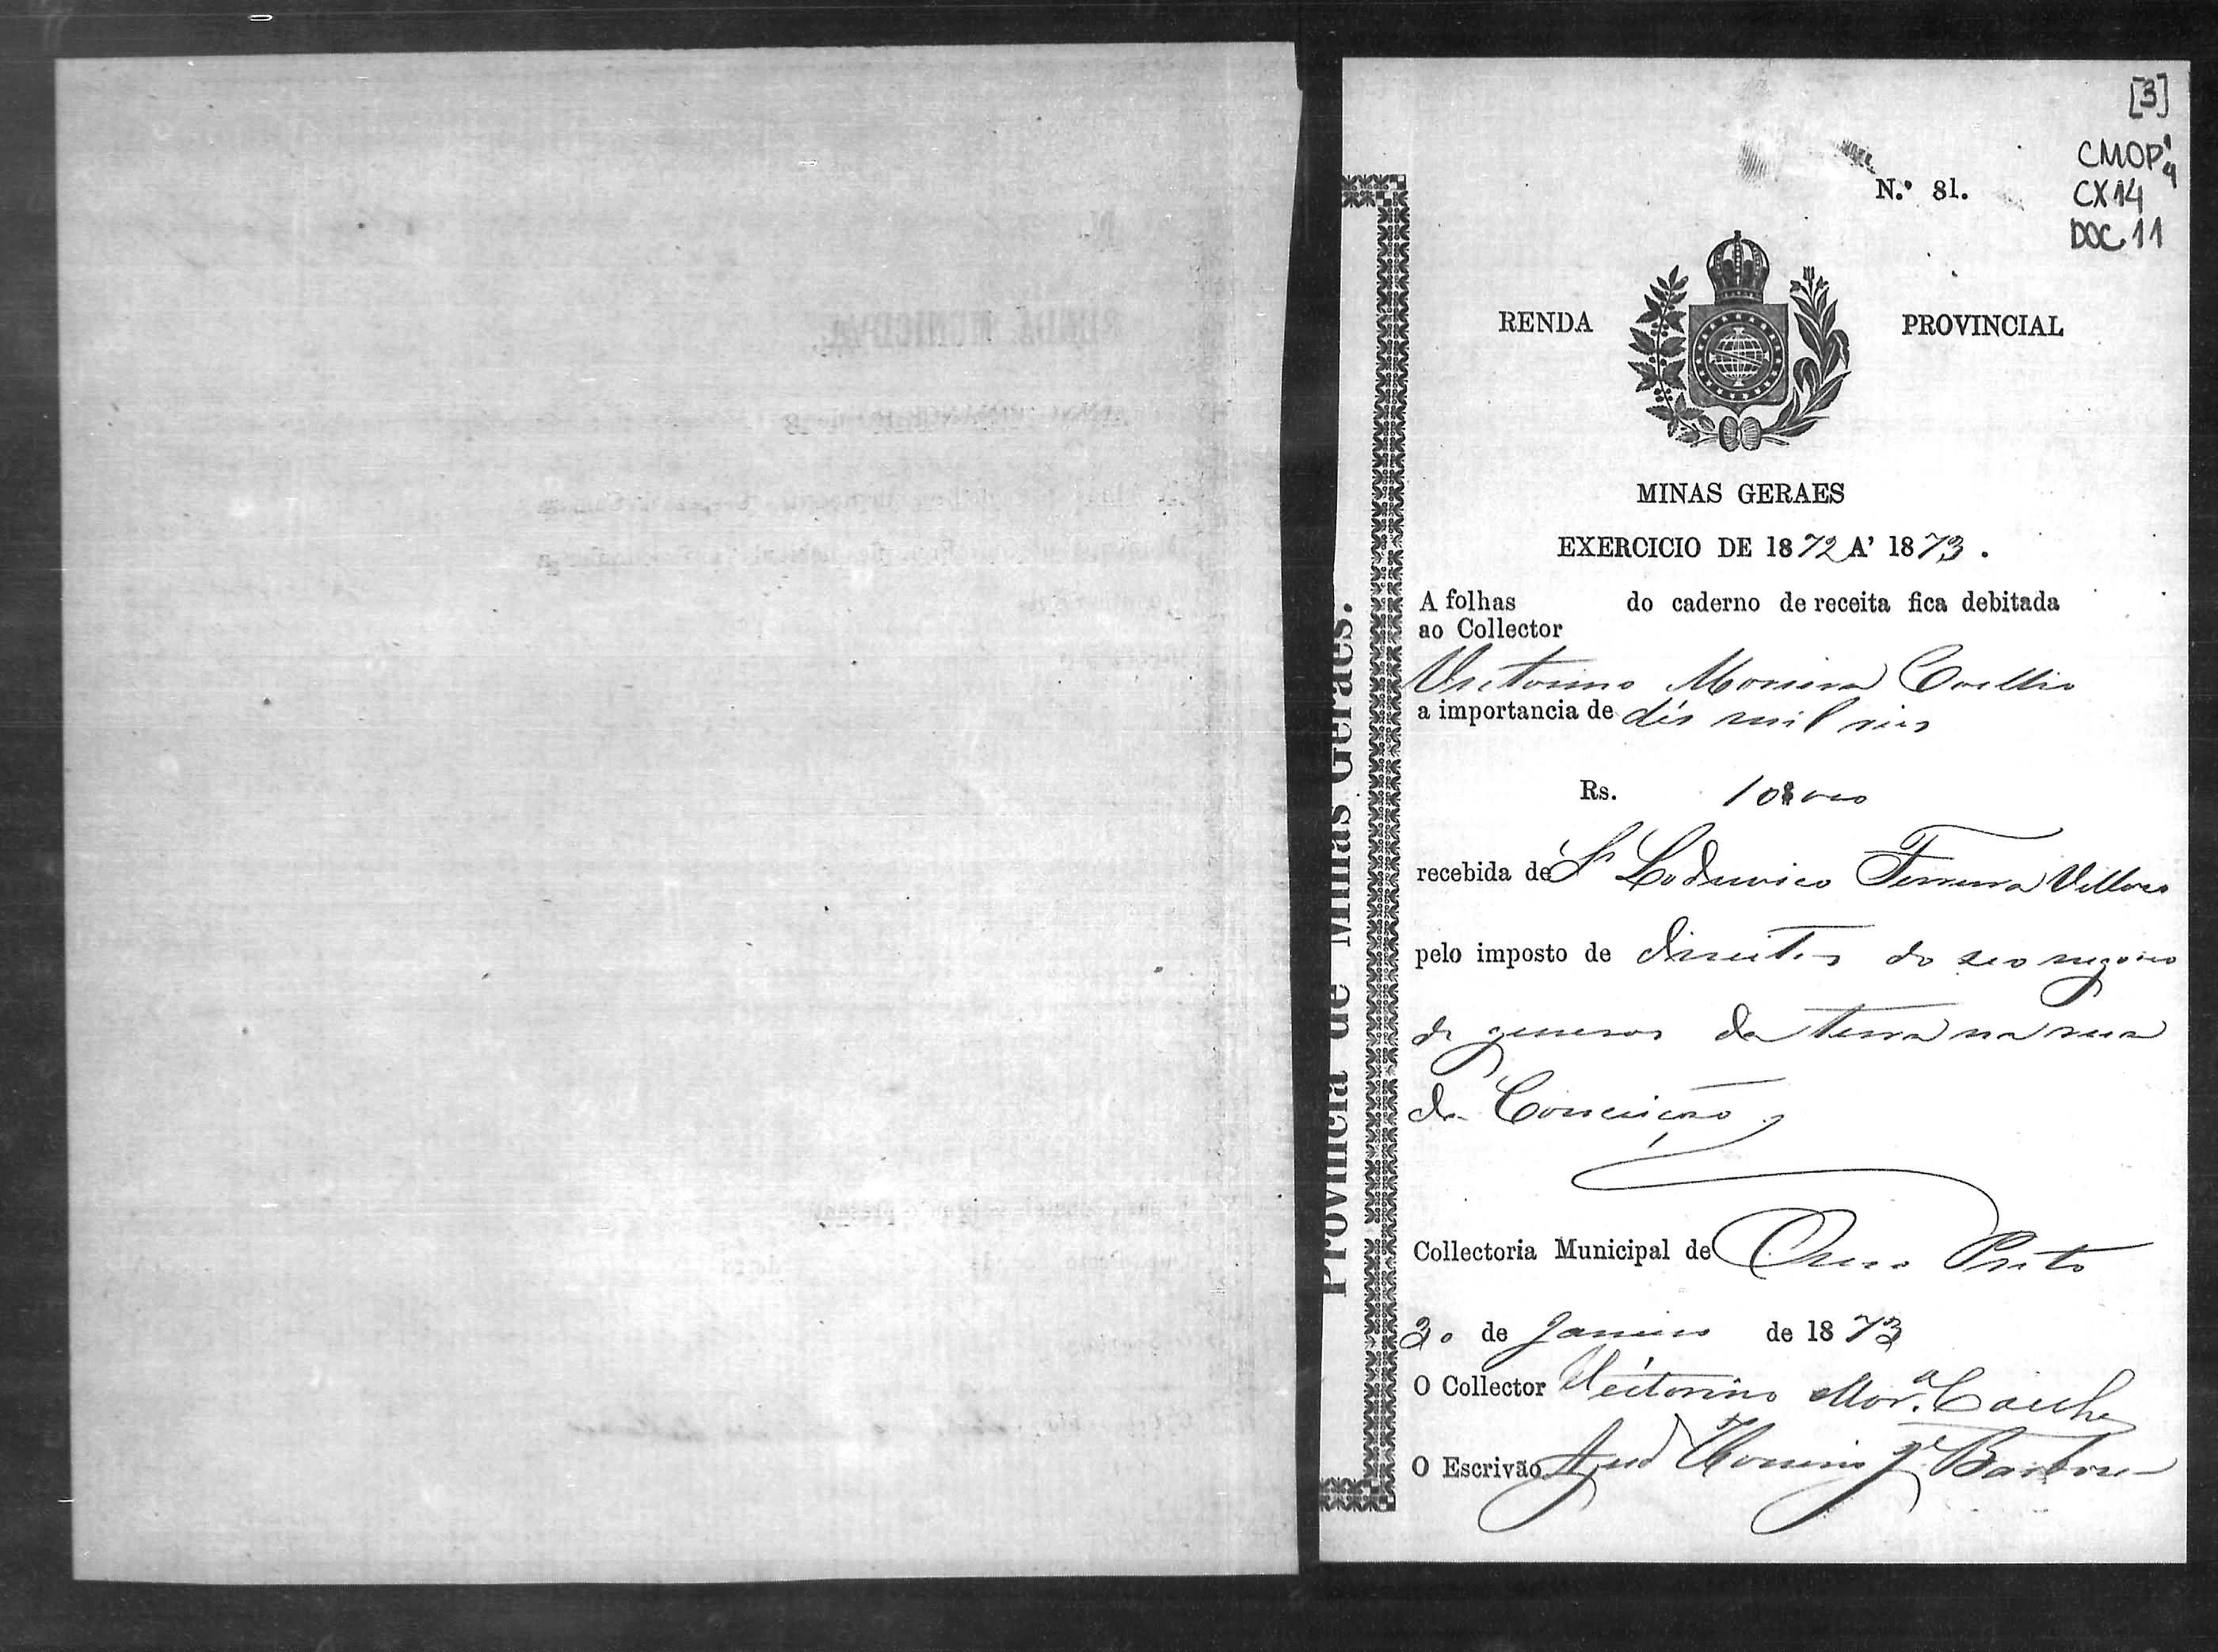 [3]
CMOP
CX14
DOC.11
N.º 81.
RENDA PROVINCIAL
MINAS GERAES
EXERCICIO DE 1872 A' 1873.
A folhas do caderno de receita fica debitada
ao Collector
Victorino Moreira Coelho
a importancia de dés mil reis
Rs. 10$000
recebida de Sr Lodovico Ferreira Velloso
pelo imposto de direitos do seo negocio
de generos da terra na rua
da Conceição
Collectoria Municipal de Ouro Preto
30 de Janeiro de 1873
O Collector Victorino Mor.ª Coelho
O Escrivão
Provincia de Minas Geraes.
RENDA MUNICIPAL